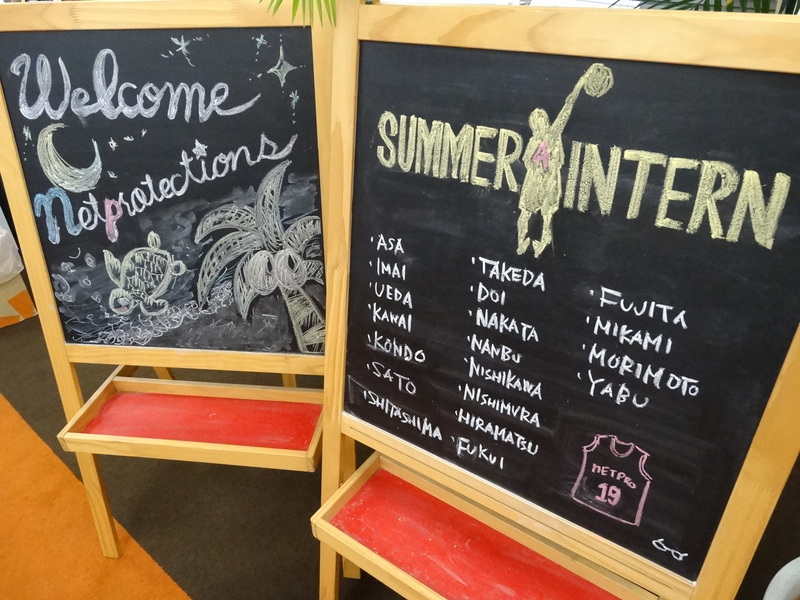 Welcome
Netprotections
SUMMER 4 INTERN
・ASA
・IMAI
・UEDA
・KAWAI
・KONDO
・SATO
・SHITASHIMA
・TAKEDA
・DOI
・NAKATA
・NANBU
・NISHIKAWA
・NISHIMURA
・HIRAMATSU
・FUKUI
・FUJITA
・MIKAMI
・MORIMOTO
・YABU
NETPRO
19